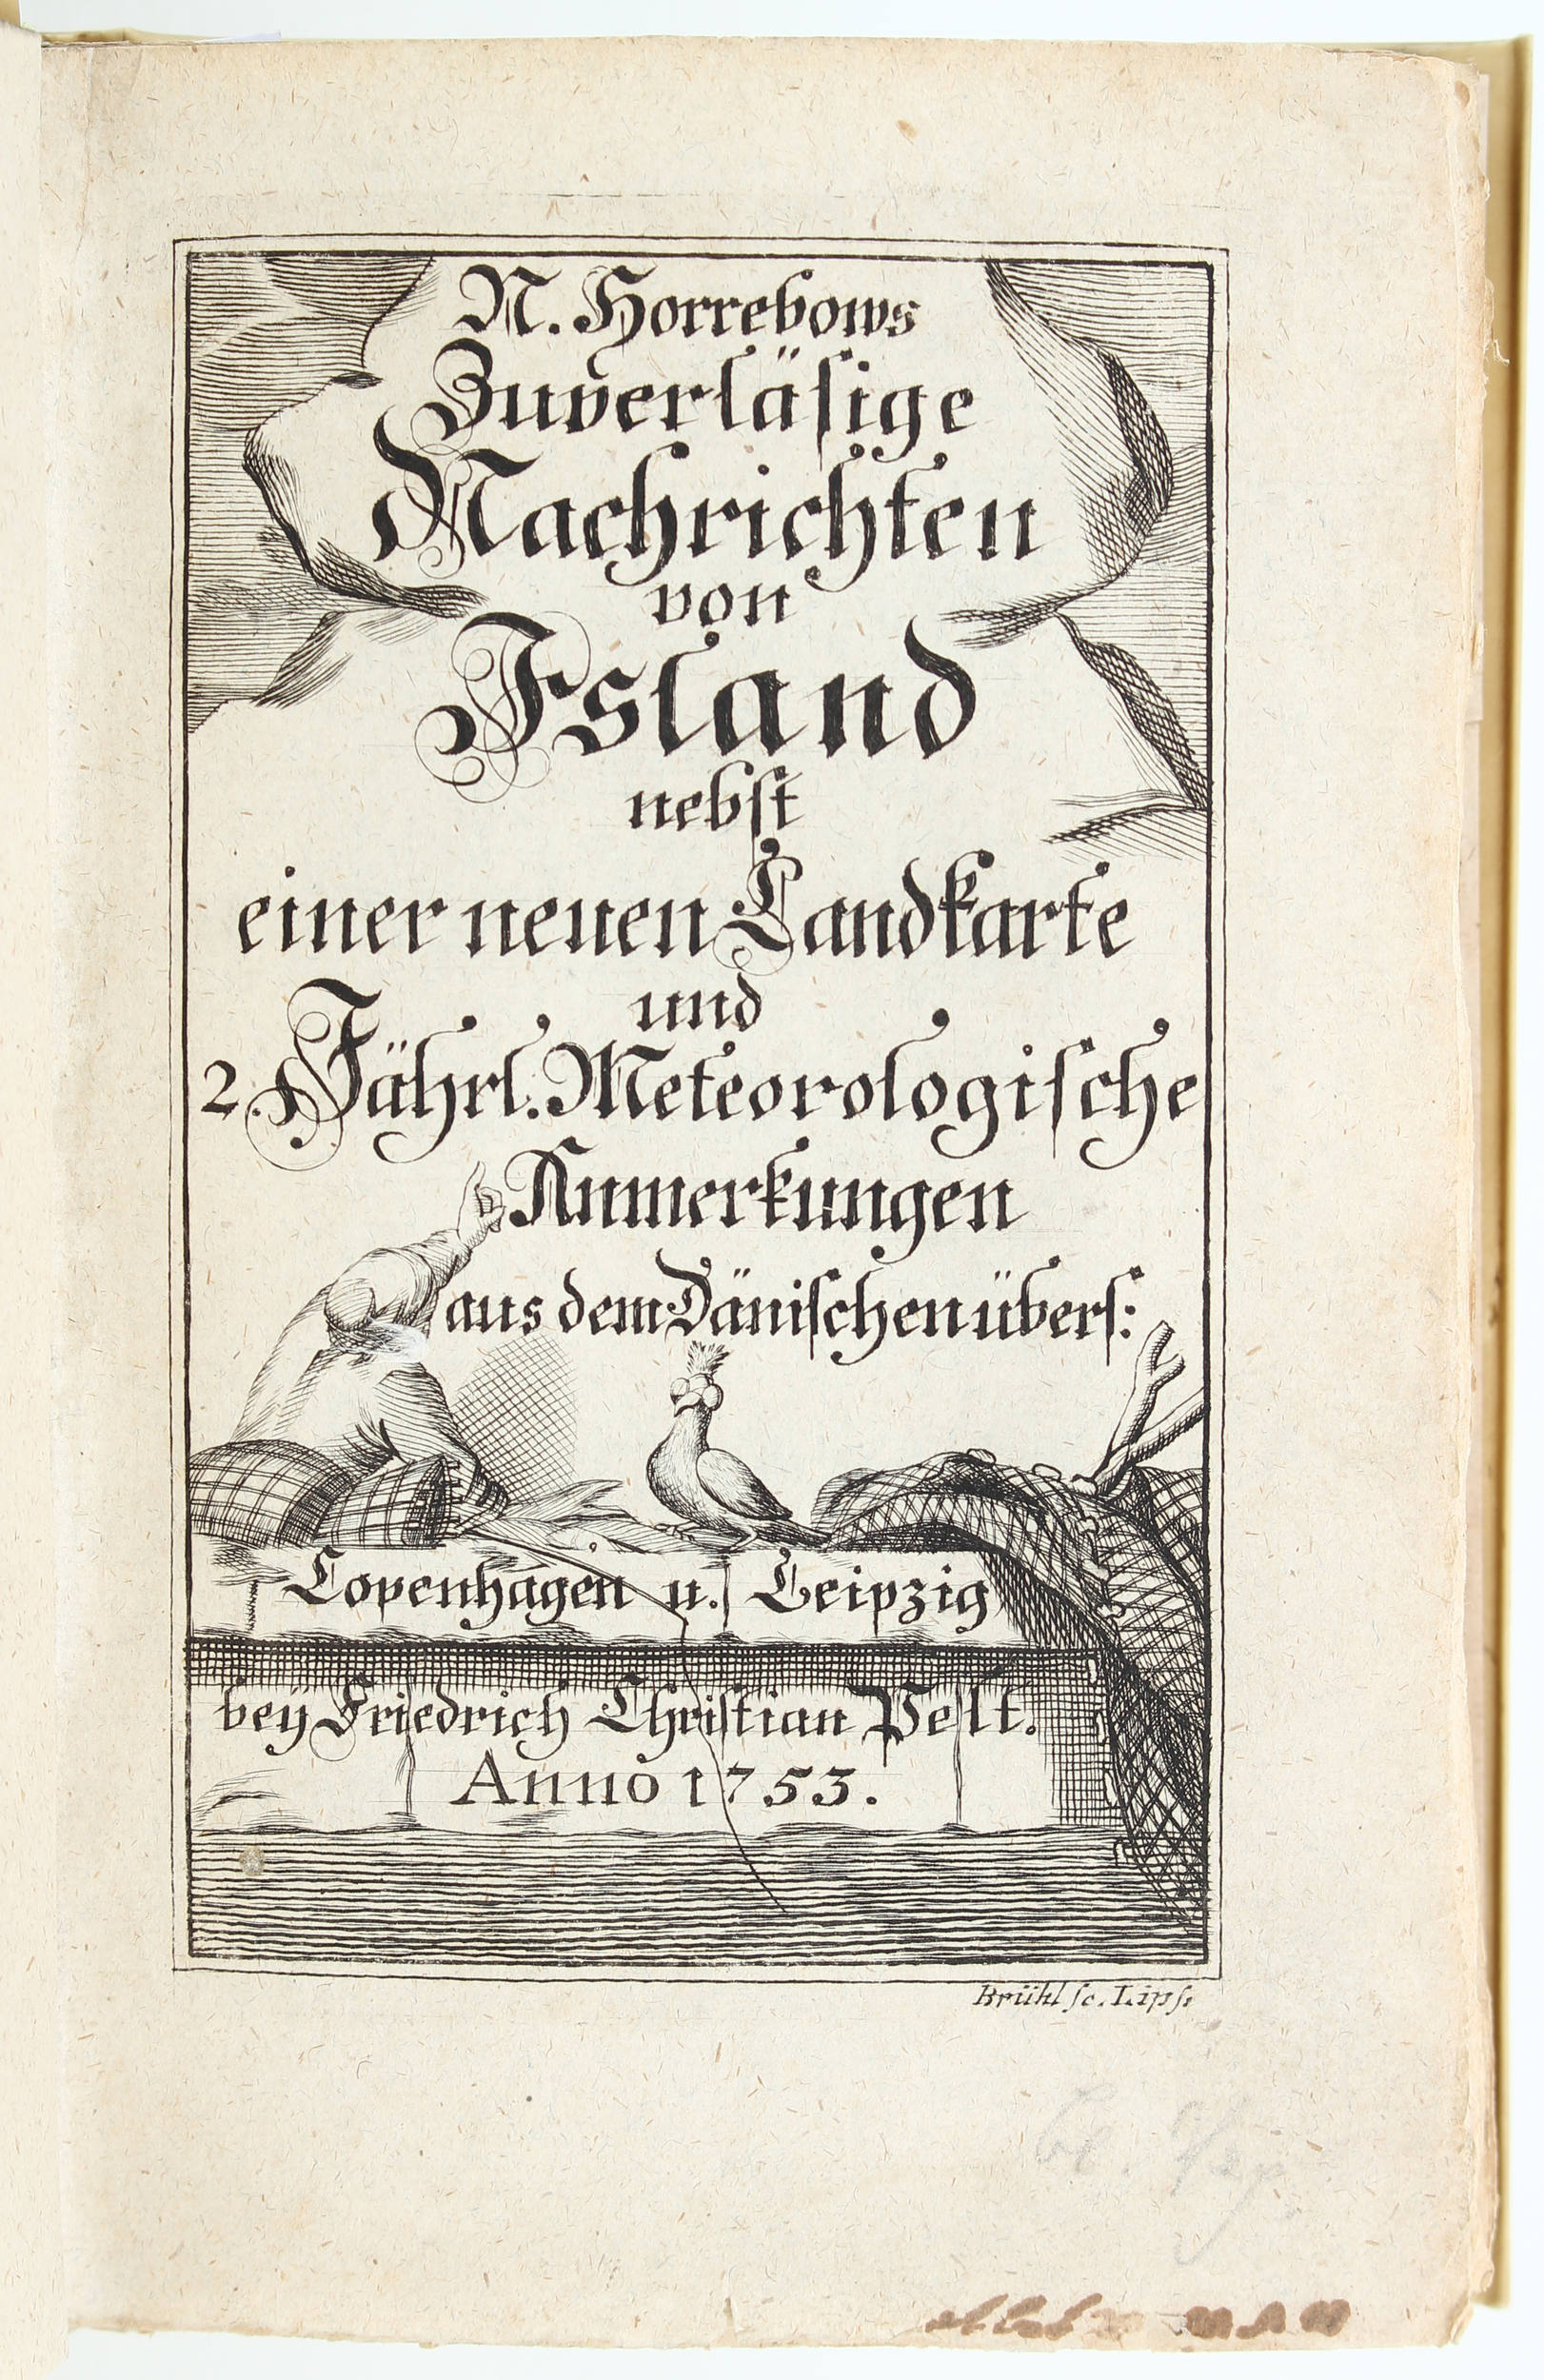 N. Horrebows
Zuverläsige
Nachrichten
von
Island
nebst
einer neuen Landkarte
und
2. Jährl. Meteorologische
Anmerkungen
aus dem Dänischen übers:
Copenhagen u. Leipzig
bey Friedrich Christian Pelt.
Anno 1753.
Brühl sc. Lips.